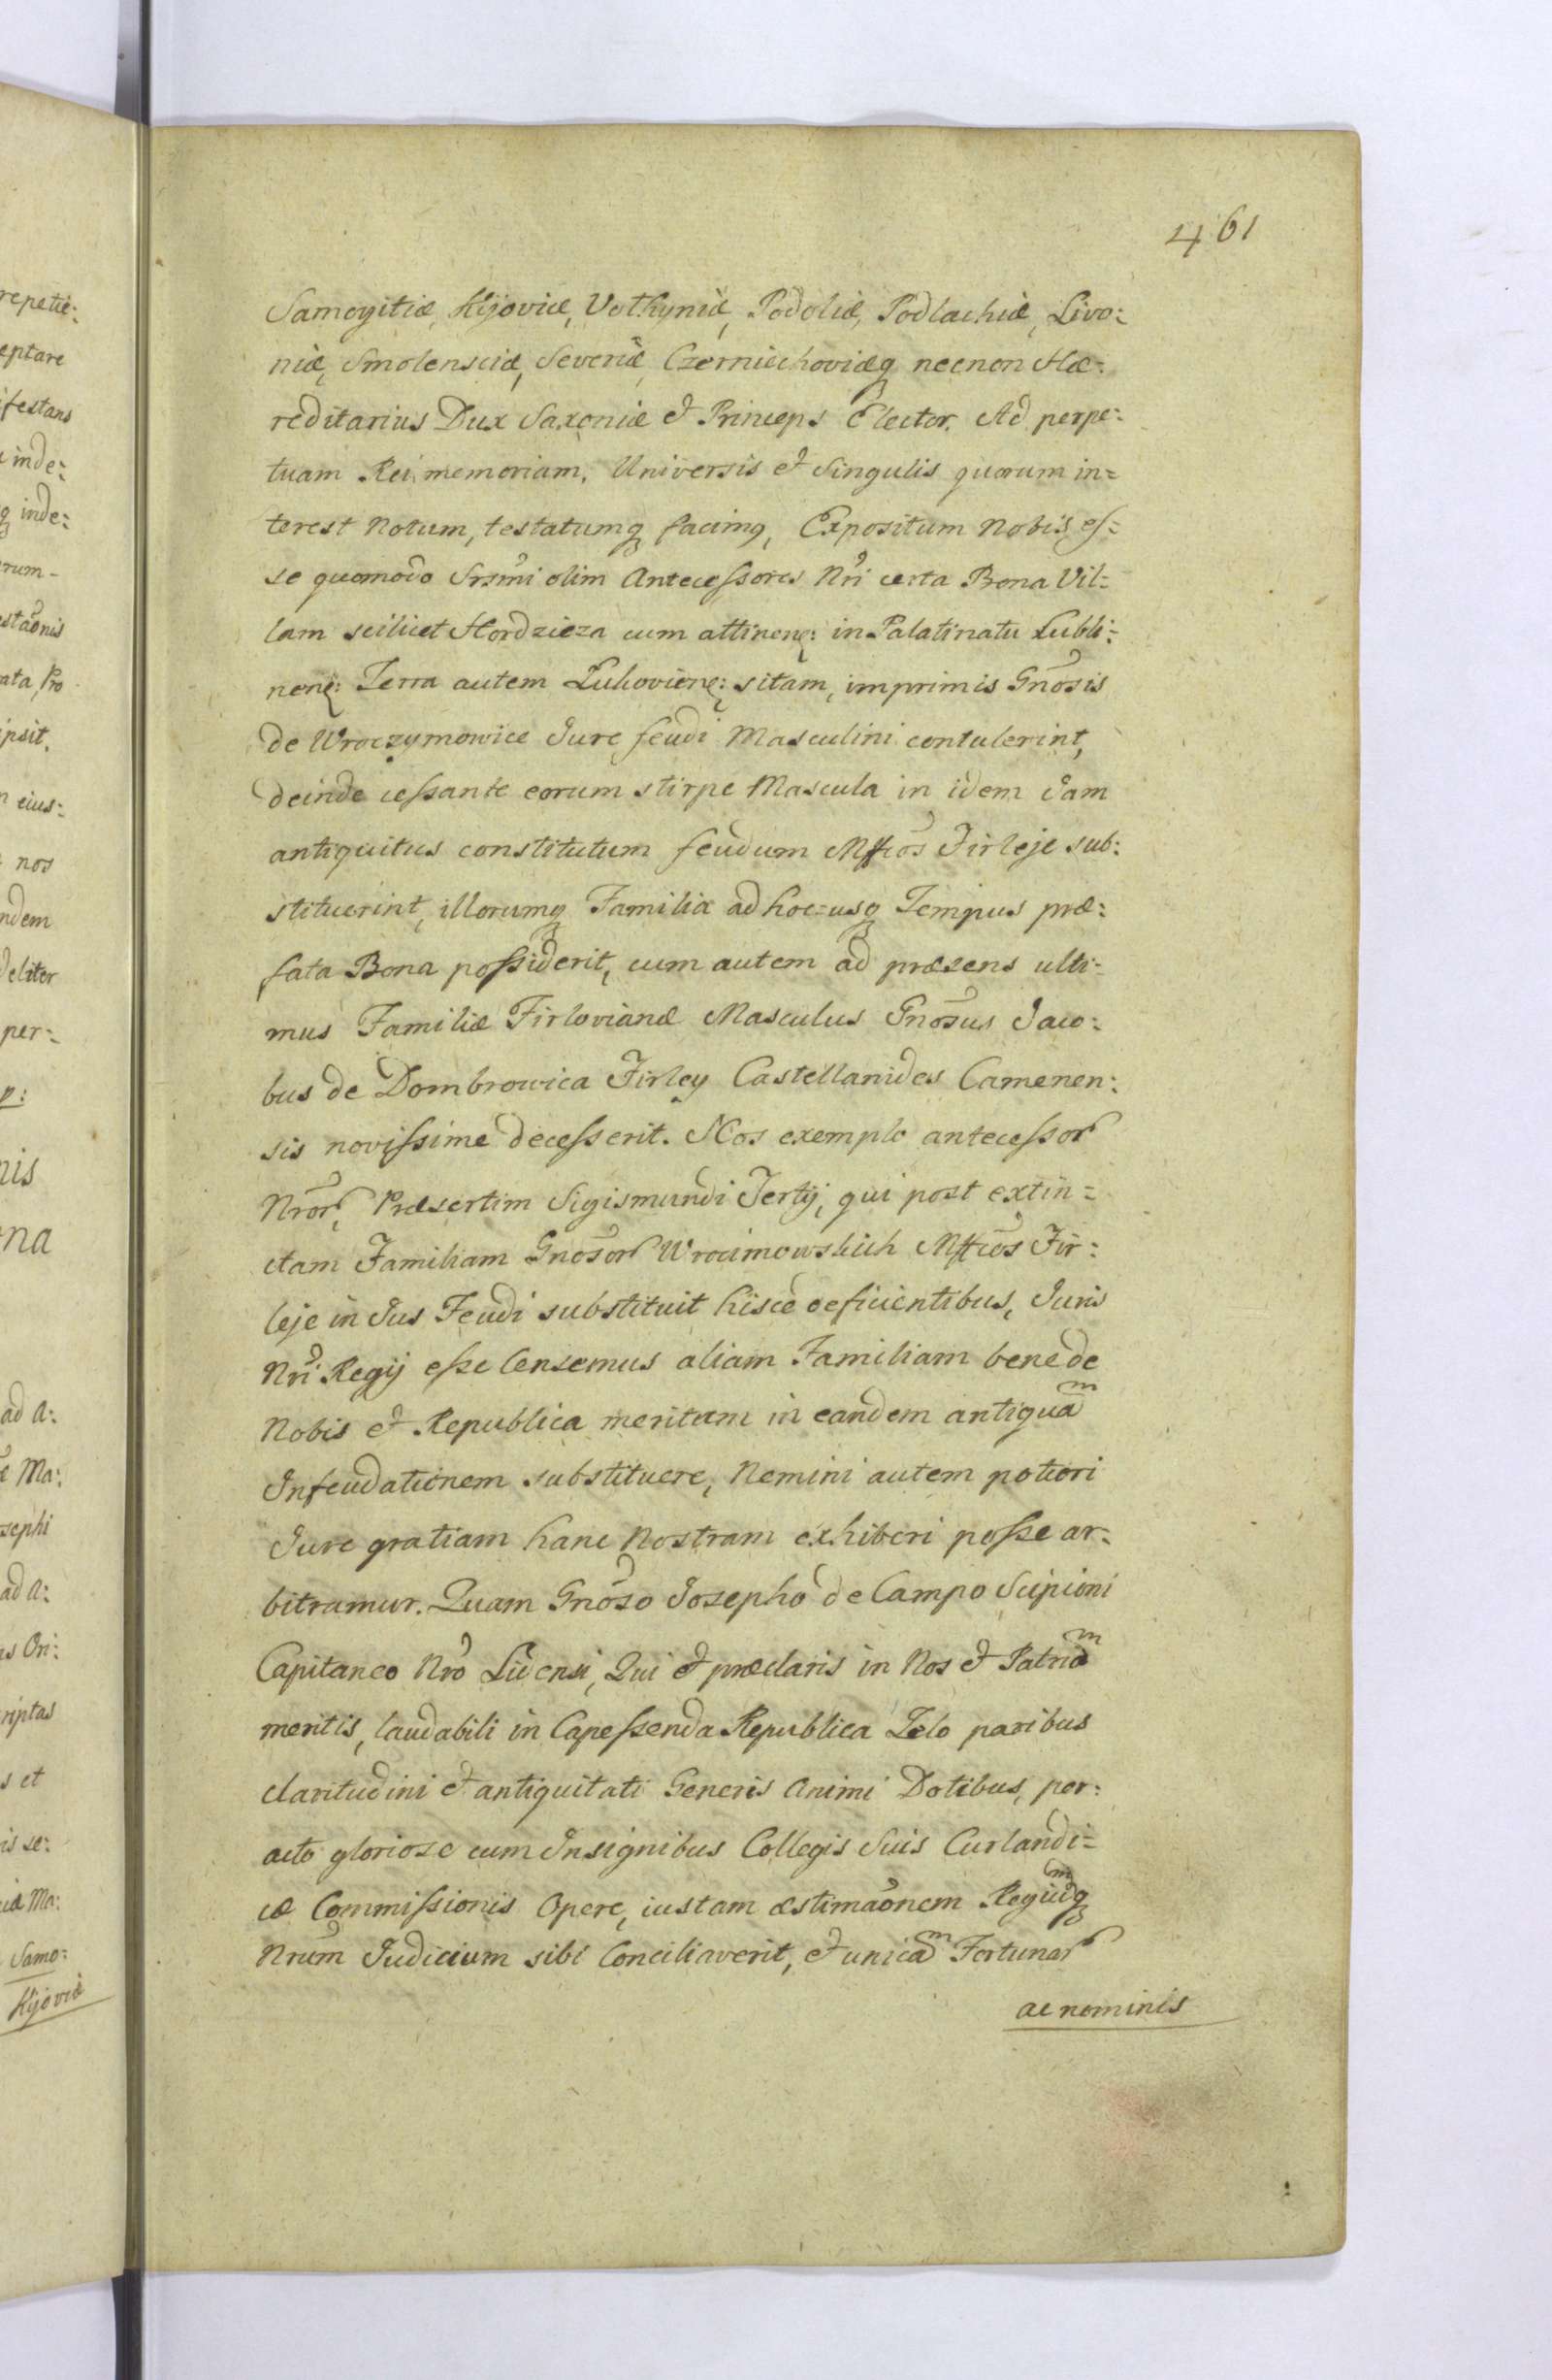 461
Samogitiæ, Kijoviæ, Volhyniæ, Podoliæ, Podlachiæ, Livo:
niæ, Smolensciæ, Severiæ, Czerniechoviæq necnon Hæ:
reditarius Dux Saxoniæ et Princeps Elector. Ad perpe:
tuam Rei memoriam. Universis et Singulis quorum in=
terest Notum, testatumq facimq, Expositum Nobis es=
se quomodo Srsm̃i olim Antecessores Nr̃i certa Bona Vil=
lam scilicet Hordzieza cum attinenę: in Palatinatu Lubli=
nenę: Terra autem Lukovienę: sitam, imprimis Gnõsis
de Wroczymowice Jure feudi Masculini contulerint,
deinde cessante eorum stirpe Mascula in idem Jam
antiquitus constitutum feudum Mffcõs Firleje sub:
stituerint, illorumq Familia ad hoc=usq Tempus præ:
fata Bona possiderit, cum autem ad præsens ulti=
mus Familiæ Firlovianæ Masculus Gnõsus Jaco:
bus de Dombrowica Firley Castellanides Camenen:
sis novissime decesserit. Nos exemplo antecessor
Nrõr, Præsertim Sigismundi Tertij, qui post extin=
ctam Familiam Gnosõr Wrocimowskich Mffcõs Fir:
leje in Jus Feudi substituit hisce deficientibus, Juris
Nr̃i Regij esse Censemus aliam Familiam bene de
Nobis et Republica meritam in eandem antiquam
Infeudationem substituere, Nemini autem potiori
Jure gratiam hanc Nostram exhiberi posse ar=
bitramur. Quam Gnõso Josepho de Campo Scipioni
Capitaneo Nrõ Livensi, Qui et præclaris in Nos et Patriam
meritis, laudabili in Capessenda Republica Zelo paribus
claritudini et antiquitati Generis Animi Dotibus, per:
acto gloriose cum Insignibus Collegis Suis Curlandi=
cæ Commissionis Opere, iustam æstimaõnem Regiumq
Nrum̃ Judicium sibi Conciliaverit, et unicam Fortunar
ac nominis